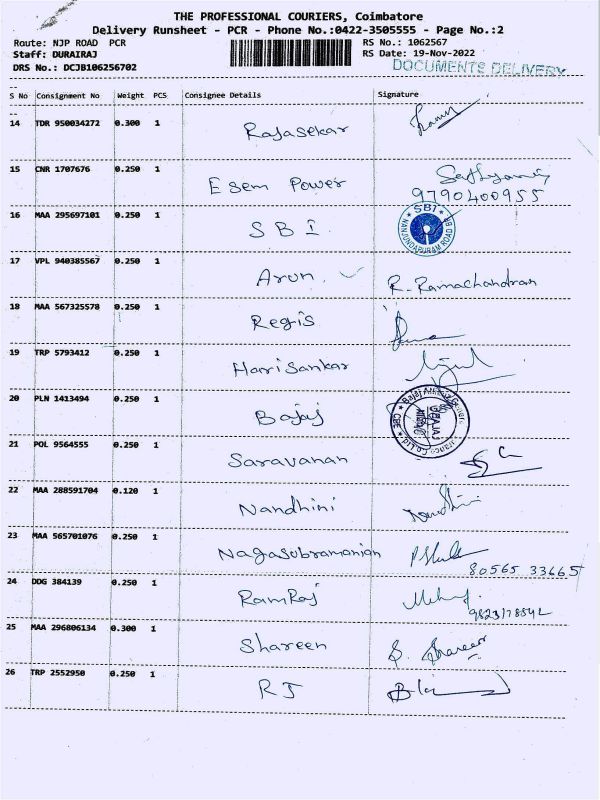 THE PROFESSIONAL COURIERS, Coimbatore
Delivery Runsheet - PCR - Phone No.:0422-3505555 - Page No.:2
Route: NJP ROAD PCR RS No.: 1062567
Staff: DURAIRAJ RS Date: 19-Nov-2022
DRS No.: DCJB106256702 DOCUMENTS DELIVERY
S No Consignment No Weight PCS Consignee Details Signature
14 TDR 950034272 0.300 1 Rajasekar
15 CNR 1707676 0.250 1 Esem Power
9790400955
16 MAA 295697101 0.250 1 SBI SBI NANJUNDAPURAM ROAD
17 VPL 940385567 0.250 1 Arun R. Ramachandran
18 MAA 567325578 0.250 1 Regis
19 TRP 5793412 0.250 1 Harisankar
20 PLN 1413494 0.250 1 Bajaj
21 POL 9564555 0.250 1 Saravanan
22 MAA 288591704 0.120 1 Nandhini Nandhini
23 MAA 565701076 0.250 1 Nagasubramanian
80565 33665
24 DDG 384139 0.250 1 RamRaj
25 MAA 296806134 0.300 1 Shareen S. Shareen
26 TRP 2552950 0.250 1 RJ